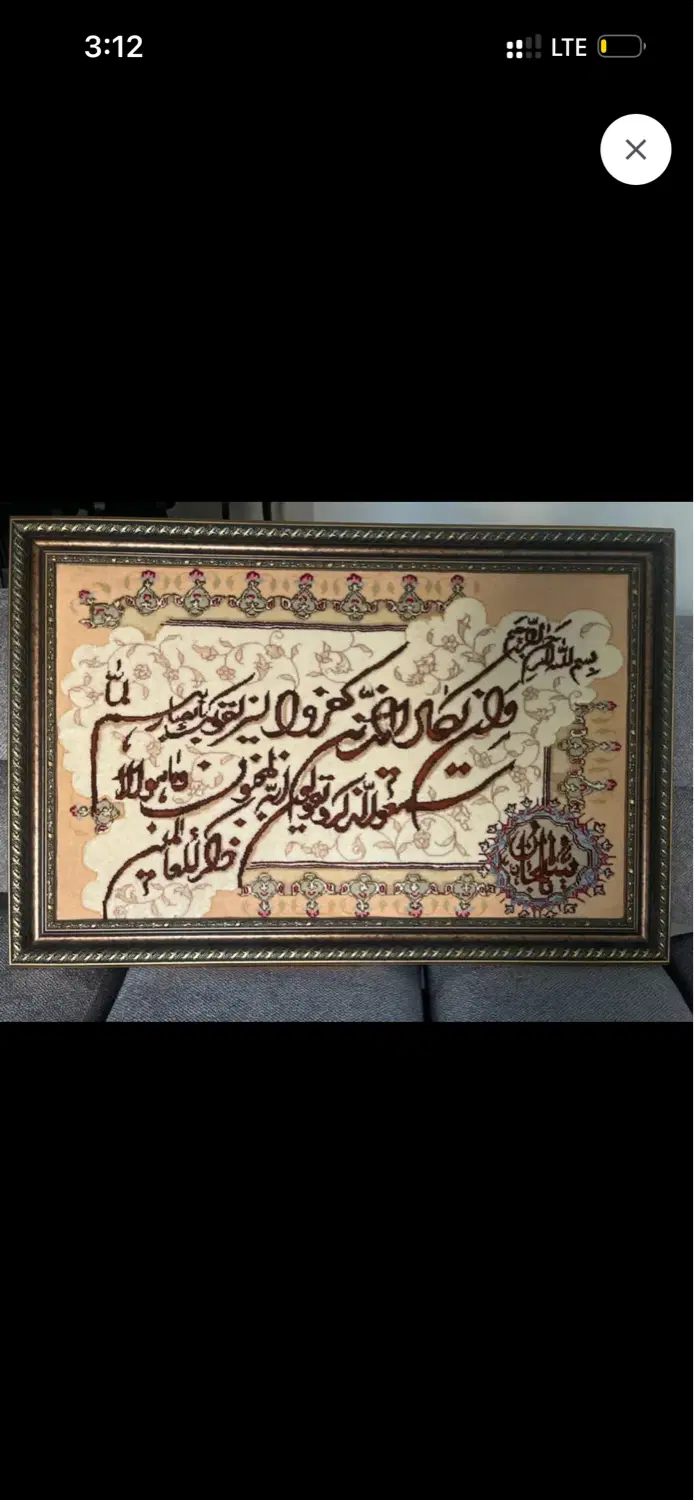 3:12
LTE
بسم الله الرحمن الرحیم
وإن یکاد الذین کفروا لیزلقونک بأبصارهم لما
سمعوا الذکر ویقولون إنه لمجنون وما هو إلا
ذکر للعالمین